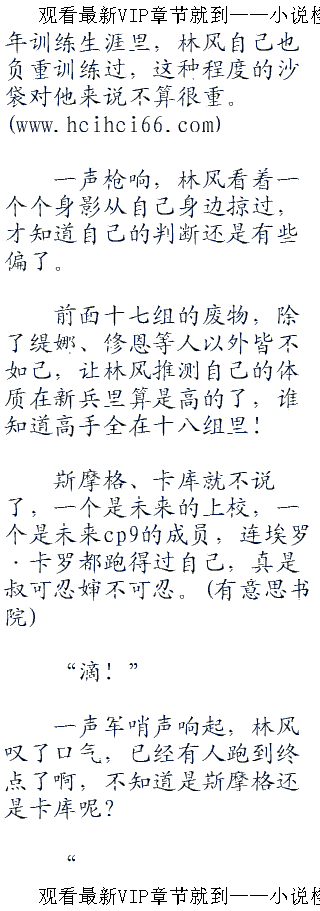 观看最新VIP章节就到——小说
年训练生涯里，林风自己也
负重训练过，这种程度的沙
袋对他来说不算很重。
(www.hcihci66.com)
一声枪响，林风看着一
个个身影从自己身边掠过，
才知道自己的判断还是有些
偏了。
前面十七组的废物，除
了缇娜、修恩等人以外皆不
如己，让林风推测自己的体
质在新兵里算是高的了，谁
知道高手全在十八组里！
斯摩格、卡库就不说
了，一个是未来的上校，一
个是未来cp9的成员，连埃罗
·卡罗都跑得过自己，真是
叔可忍婶不可忍。(有意思书
院)
“滴！”
一声军哨声响起，林风
叹了口气，已经有人跑到终
点了啊，不知道是斯摩格还
是卡库呢？
“
观看最新VIP章节就到——小说